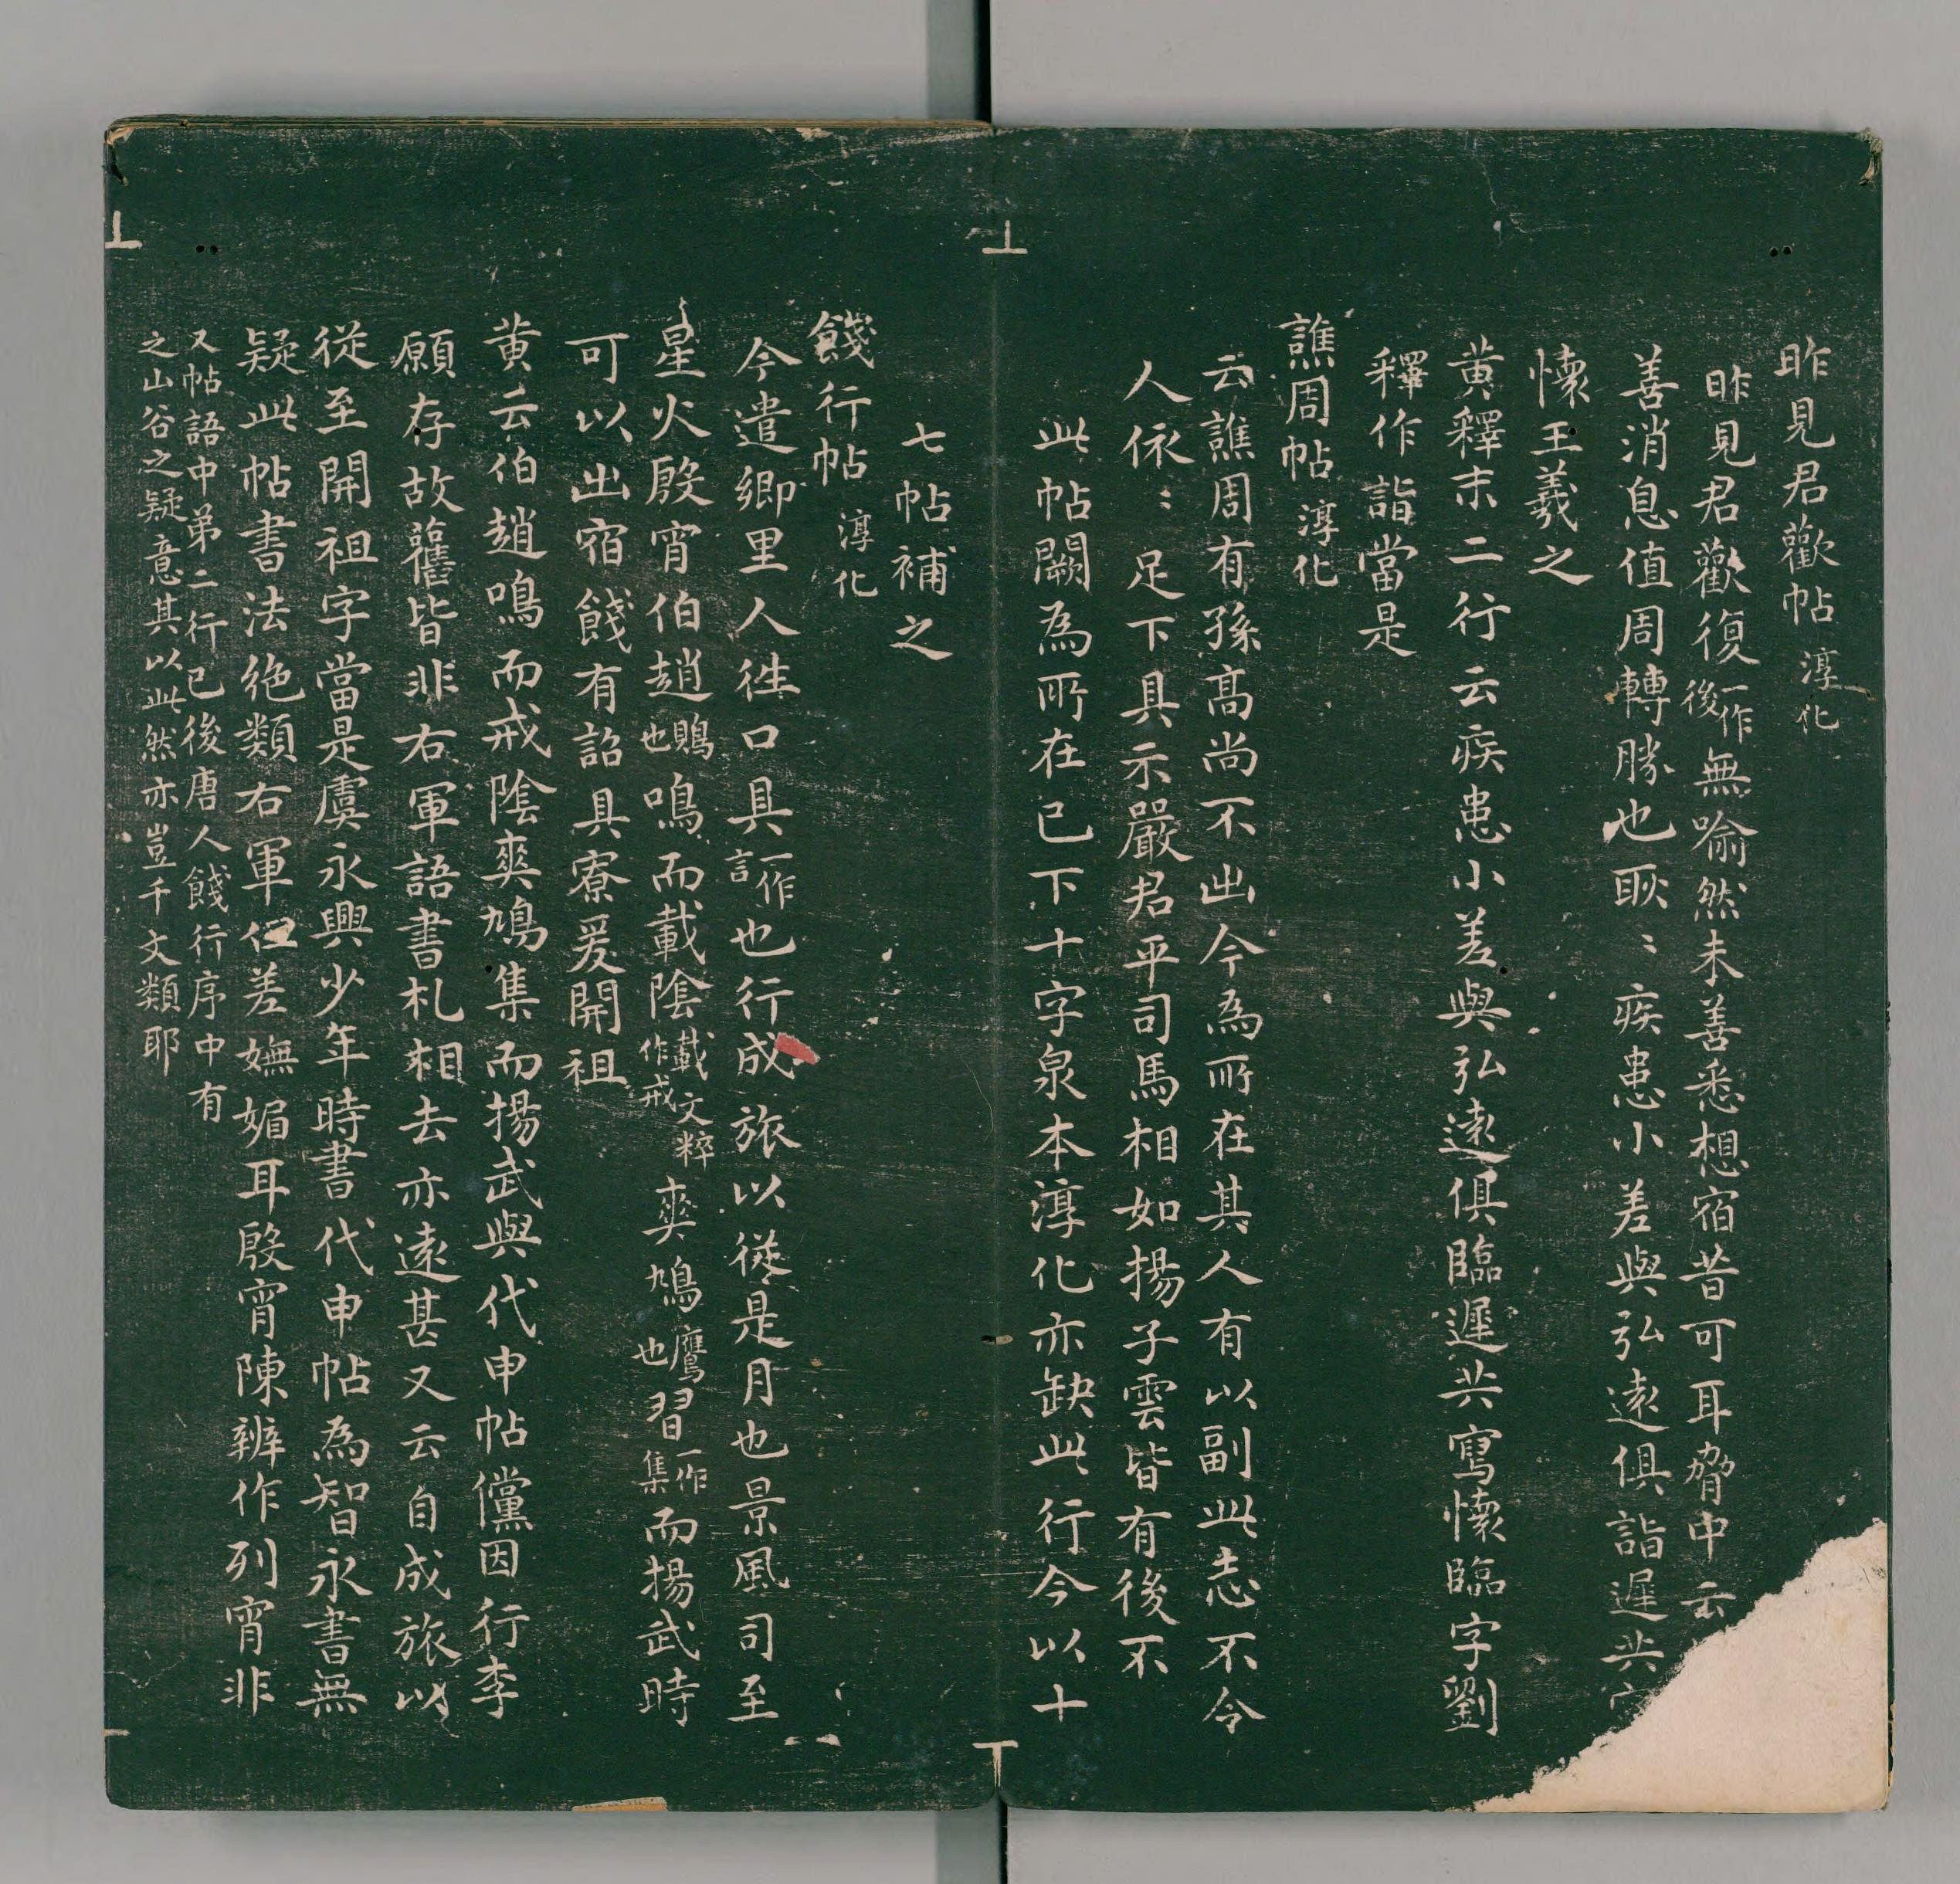 昨見君歡帖 淳化
昨見君歡復一作後無喻然未善悉想宿昔可耳脅中云
善消息值周轉勝也耿〻疾患小差與弘遠俱詣遲共
懷王羲之
黄釋末二行云疾患小差與弘遠俱臨遲共寫懷臨字劉
釋作詣當是
譙周帖 淳化
云譙周有孫高尚不出今為所在其人有以副此志不令
人依〻足下具示嚴君平司馬相如揚子雲皆有後不
此帖闕為所在已下十字泉本淳化亦缺此行今以十
七帖補之
餞行帖 淳化
今遣鄉里人往口具一作言也行成旅以從是月也景風司至
星火殷宵伯趙鵙也鳴而載陰載文粹作戒爽鳩鷹也習一作集而揚武時
可以出宿餞有詔具寮爰開祖
黄云伯趙鳴而戒陰爽鳩集而揚武與代申帖儻因行李
願存故舊皆非右軍語書札相去亦遠甚又云自成旅以
從至開祖字當是虞永興少年時書代申帖為智永書無
疑此帖書法絶類右軍但差嫵媚耳殷宵陳辨作列宵非
又帖語中第二行已後唐人餞行序中有
之山谷之疑意其以此然亦豈千文類耶